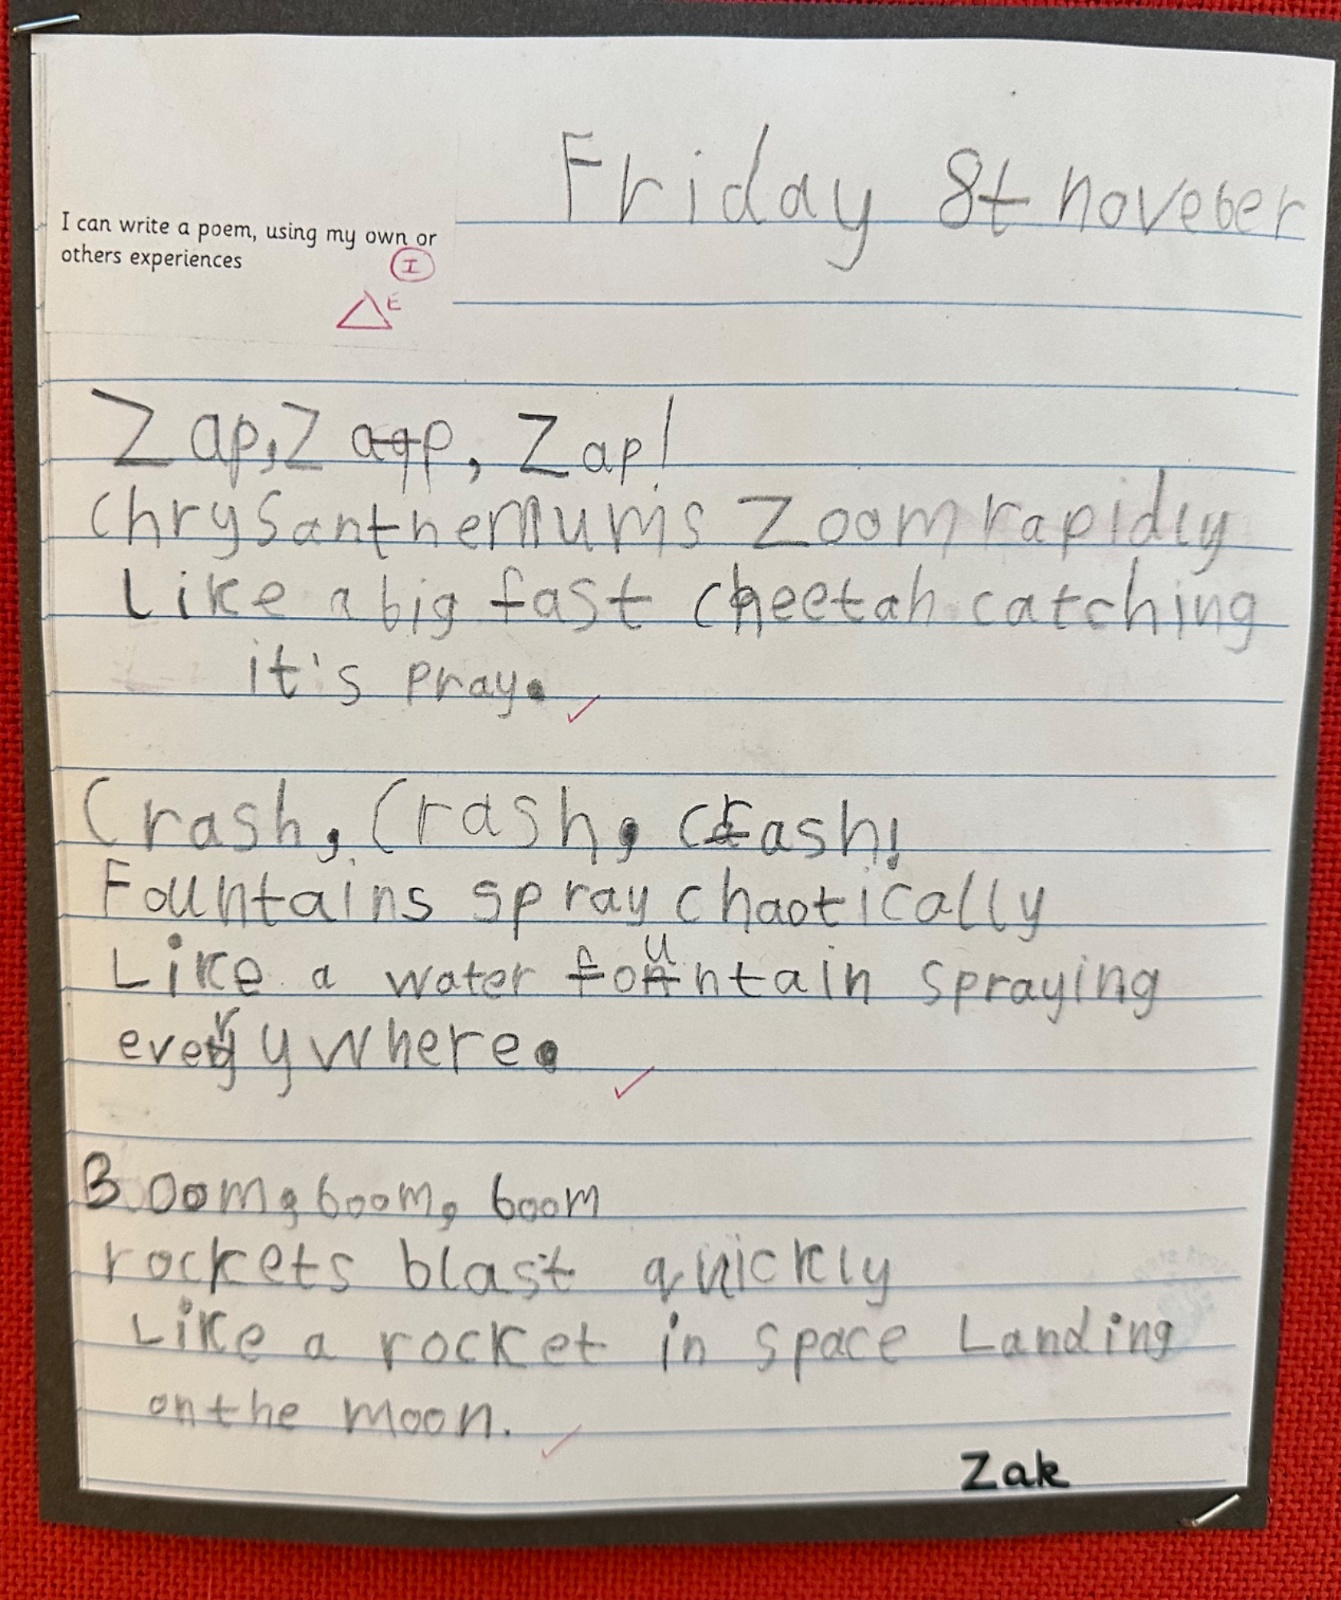 Friday 8t noveber
I can write a poem, using my own or
others experiences
I
E
Zap, Zap, Zap!
Chrysanthemums Zoom rapidly
Like a big fast cheetah catching
it's pray.
Crash, Crash, crash!
Fountains spray chaotically
Like a water fountain spraying
everywhere.
Boom, boom, boom
rockets blast quickly
Like a rocket in space Landing
on the moon.
Zak